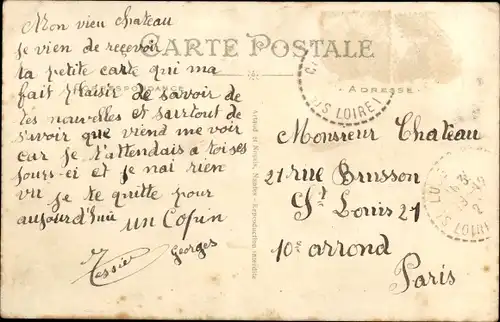 Mon vieu chateau
je vien de recevoir
ta petite carte qui ma
fait plaisir de savoir de
tes nouvelles et surtout de
savoir que viend me voir
car je t'attendais a toi ses
jours-ci et je nai rien
vu je te quitte pour
aujourd'hui
un Copin
Georges
Tessier
CARTE POSTALE
CORRESPONDANCE
ADRESSE
Artaud et Nozais, Nantes - Reproduction interdite
LOIRE
Monsieur Chateau
21 rue Brusson
St Louis 21
10e arrond
Paris